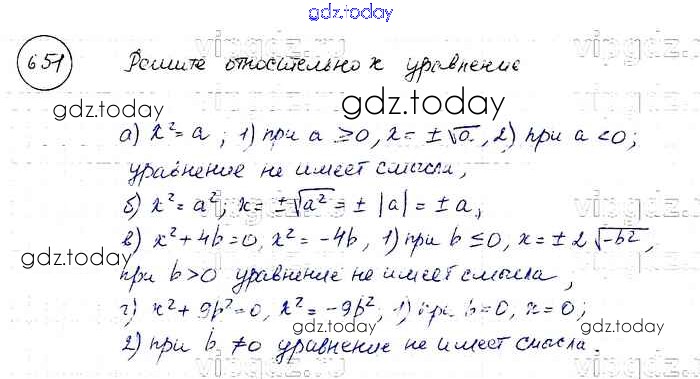 gdz.today
651 Решите относительно x уравнение
gdz.today
gdz.today
а) x² = a; 1) при a ≥ 0, x = ±√a, 2) при a < 0;
уравнение не имеет смысла,
б) x² = a²; x = ±√a² = ± |a| = ± a,
в) x² + 4b = 0, x² = -4b, 1) при b ≤ 0, x = ± 2 √-b²,
gdz.today
при b > 0 уравнение не имеет смысла,
г) x² + 9b² = 0, x² = -9b², 1) при b = 0, x = 0;
gdz.today
2) при b ≠ 0 уравнение не имеет смысла.